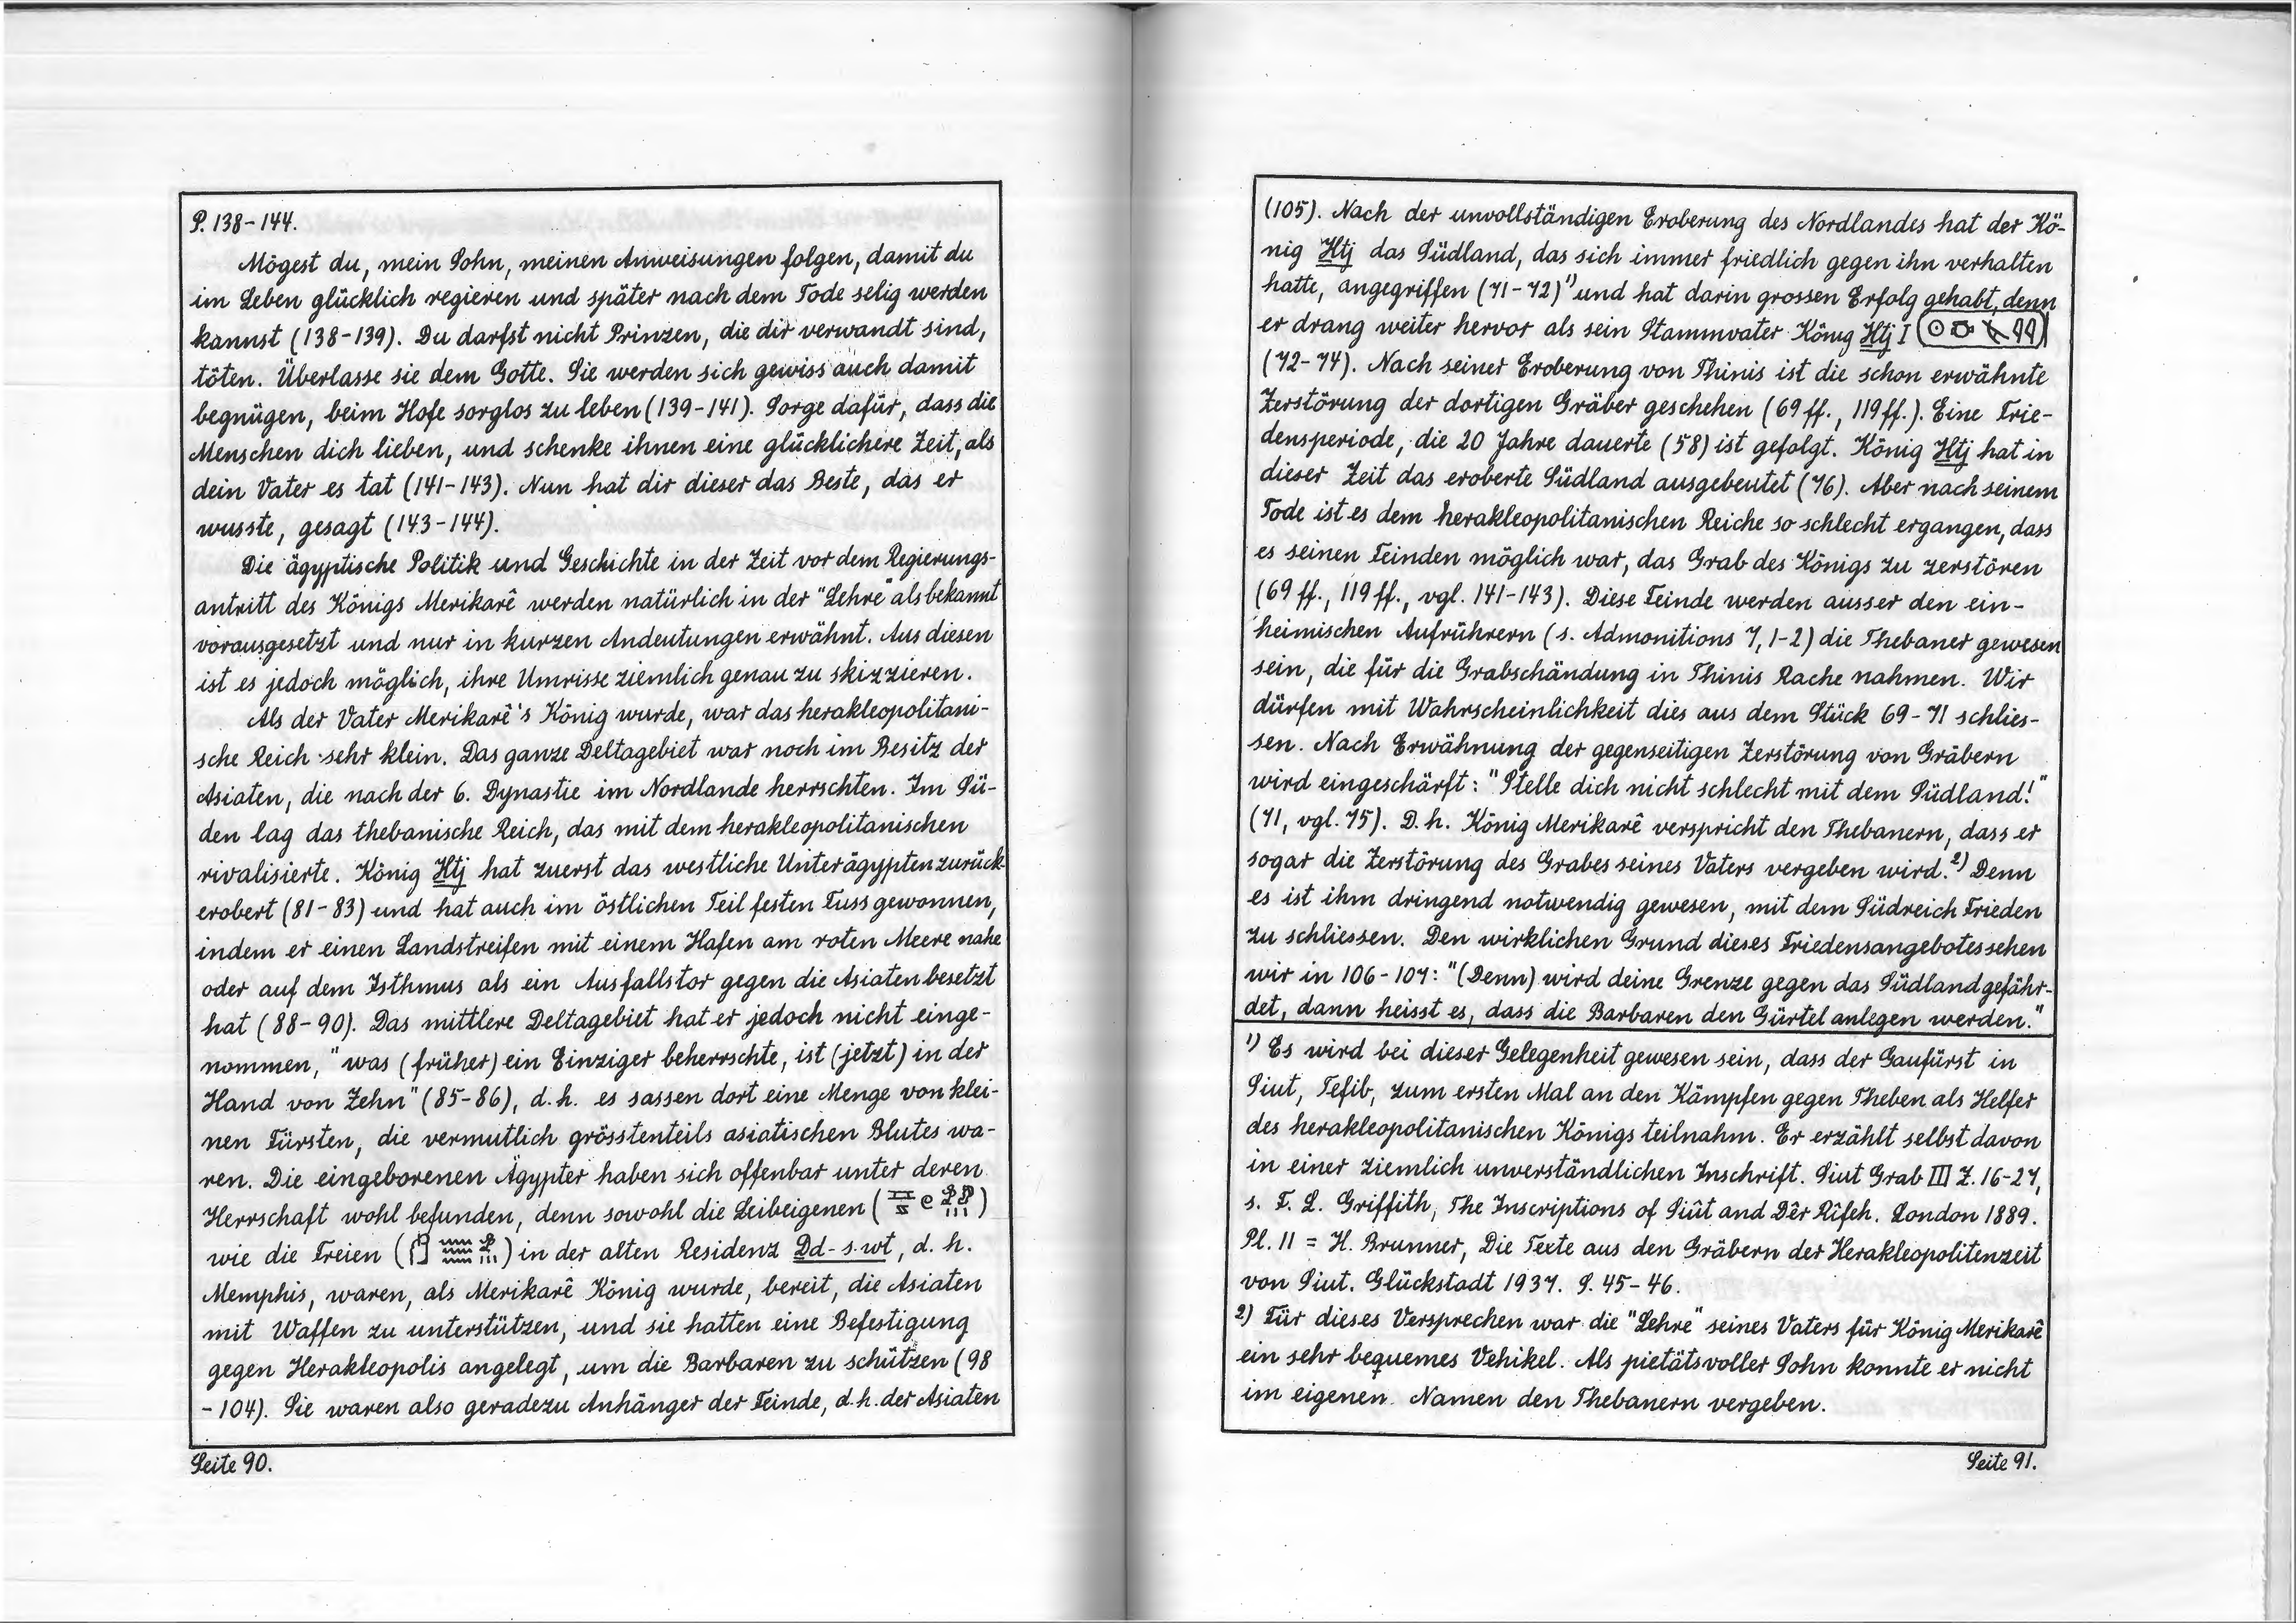 P. 138-144.
Mögest du, mein Sohn, meinen Anweisungen folgen, damit du
im Leben glücklich regieren und später nach dem Tode selig werden
kannst (138-139). Du darfst nicht Prinzen, die dir verwandt sind,
töten. Überlasse sie dem Gotte. Sie werden sich gewiss auch damit
begnügen, beim Hofe sorglos zu leben (139-141). Sorge dafür, dass die
Menschen dich lieben, und schenke ihnen eine glücklichere Zeit, als
dein Vater es tat (141-143). Nun hat dir dieser das Beste, das er
wusste, gesagt (143-144).
Die ägyptische Politik und Geschichte in der Zeit vor dem Regierungs-
antritt des Königs Merikarê werden natürlich in der "Lehre" als bekannt
vorausgesetzt und nur in kurzen Andeutungen erwähnt. Aus diesen
ist es jedoch möglich, ihre Umrisse ziemlich genau zu skizzieren.
Als der Vater Merikarê's König wurde, war das herakleopolitani-
sche Reich sehr klein. Das ganze Deltagebiet war noch im Besitz der
Asiaten, die nach der 6. Dynastie im Nordlande herrschten. Im Sü-
den lag das thebanische Reich, das mit dem herakleopolitanischen
rivalisierte. König H̱tj hat zuerst das westliche Unterägypten zurück-
erobert (81-83) und hat auch im östlichen Teil festen Fuss gewonnen,
indem er einen Landstreifen mit einem Hafen am roten Meere nahe
oder auf dem Isthmus als ein Ausfallstor gegen die Asiaten besetzt
hat (88-90). Das mittlere Deltagebiet hat er jedoch nicht einge-
nommen, "was (früher) ein Einziger beherrschte, ist (jetzt) in der
Hand von Zehn" (85-86), d.h. es sassen dort eine Menge von klei-
nen Fürsten, die vermutlich grösstenteils asiatischen Blutes wa-
ren. Die eingeborenen Ägypter haben sich offenbar unter deren
Herrschaft wohl befunden, denn sowohl die Leibeigenen ( )
wie die Freien ( ) in der alten Residenz Ḏd-s.wt, d. h.
Memphis, waren, als Merikarê König wurde, bereit, die Asiaten
mit Waffen zu unterstützen, und sie hatten eine Befestigung
gegen Herakleopolis angelegt, um die Barbaren zu schützen (98
-104). Sie waren also geradezu Anhänger der Feinde, d.h. der Asiaten
Seite 90.
(105). Nach der unvollständigen Eroberung des Nordlandes hat der Kö-
nig H̱tj das Südland, das sich immer friedlich gegen ihn verhalten
hatte, angegriffen (71-72)¹⁾ und hat darin grossen Erfolg gehabt, denn
er drang weiter hervor als sein Stammvater König H̱tj I ( )
(72-74). Nach seiner Eroberung von Thinis ist die schon erwähnte
Zerstörung der dortigen Gräber geschehen (69 ff., 119 ff.). Eine Frie-
densperiode, die 20 Jahre dauerte (58) ist gefolgt. König H̱tj hat in
dieser Zeit das eroberte Südland ausgebeutet (76). Aber nach seinem
Tode ist es dem herakleopolitanischen Reiche so schlecht ergangen, dass
es seinen Feinden möglich war, das Grab des Königs zu zerstören
(69 ff., 119 ff., vgl. 141-143). Diese Feinde werden ausser den ein-
heimischen Aufrührern (s. Admonitions 7,1-2) die Thebaner gewesen
sein, die für die Grabschändung in Thinis Rache nahmen. Wir
dürfen mit Wahrscheinlichkeit dies aus dem Stück 69-71 schlies-
sen. Nach Erwähnung der gegenseitigen Zerstörung von Gräbern
wird eingeschärft: "Stelle dich nicht schlecht mit dem Südland!"
(71, vgl. 75). D. h. König Merikarê verspricht den Thebanern, dass er
sogar die Zerstörung des Grabes seines Vaters vergeben wird.²⁾ Denn
es ist ihm dringend notwendig gewesen, mit dem Südreich Frieden
zu schliessen. Den wirklichen Grund dieses Friedensangebotes sehen
wir in 106-107: "(Denn) wird deine Grenze gegen das Südland gefähr-
det, dann heisst es, dass die Barbaren den Gürtel anlegen werden."
¹⁾ Es wird bei dieser Gelegenheit gewesen sein, dass der Gaufürst in
Siut, Tefib, zum ersten Mal an den Kämpfen gegen Theben als Helfer
des herakleopolitanischen Königs teilnahm. Er erzählt selbst davon
in einer ziemlich unverständlichen Inschrift. Siut Grab III Z. 16-27,
s. F. L. Griffith, The Inscriptions of Siût and Dêr Rîfeh. London 1889.
Pl. 11 = H. Brunner, Die Texte aus den Gräbern der Herakleopolitenzeit
von Siut. Glückstadt 1937. S. 45-46.
2) Für dieses Versprechen war die "Lehre" seines Vaters für König Merikarê
ein sehr bequemes Vehikel. Als pietätsvoller Sohn konnte er nicht
im eigenen Namen den Thebanern vergeben.
Seite 91.